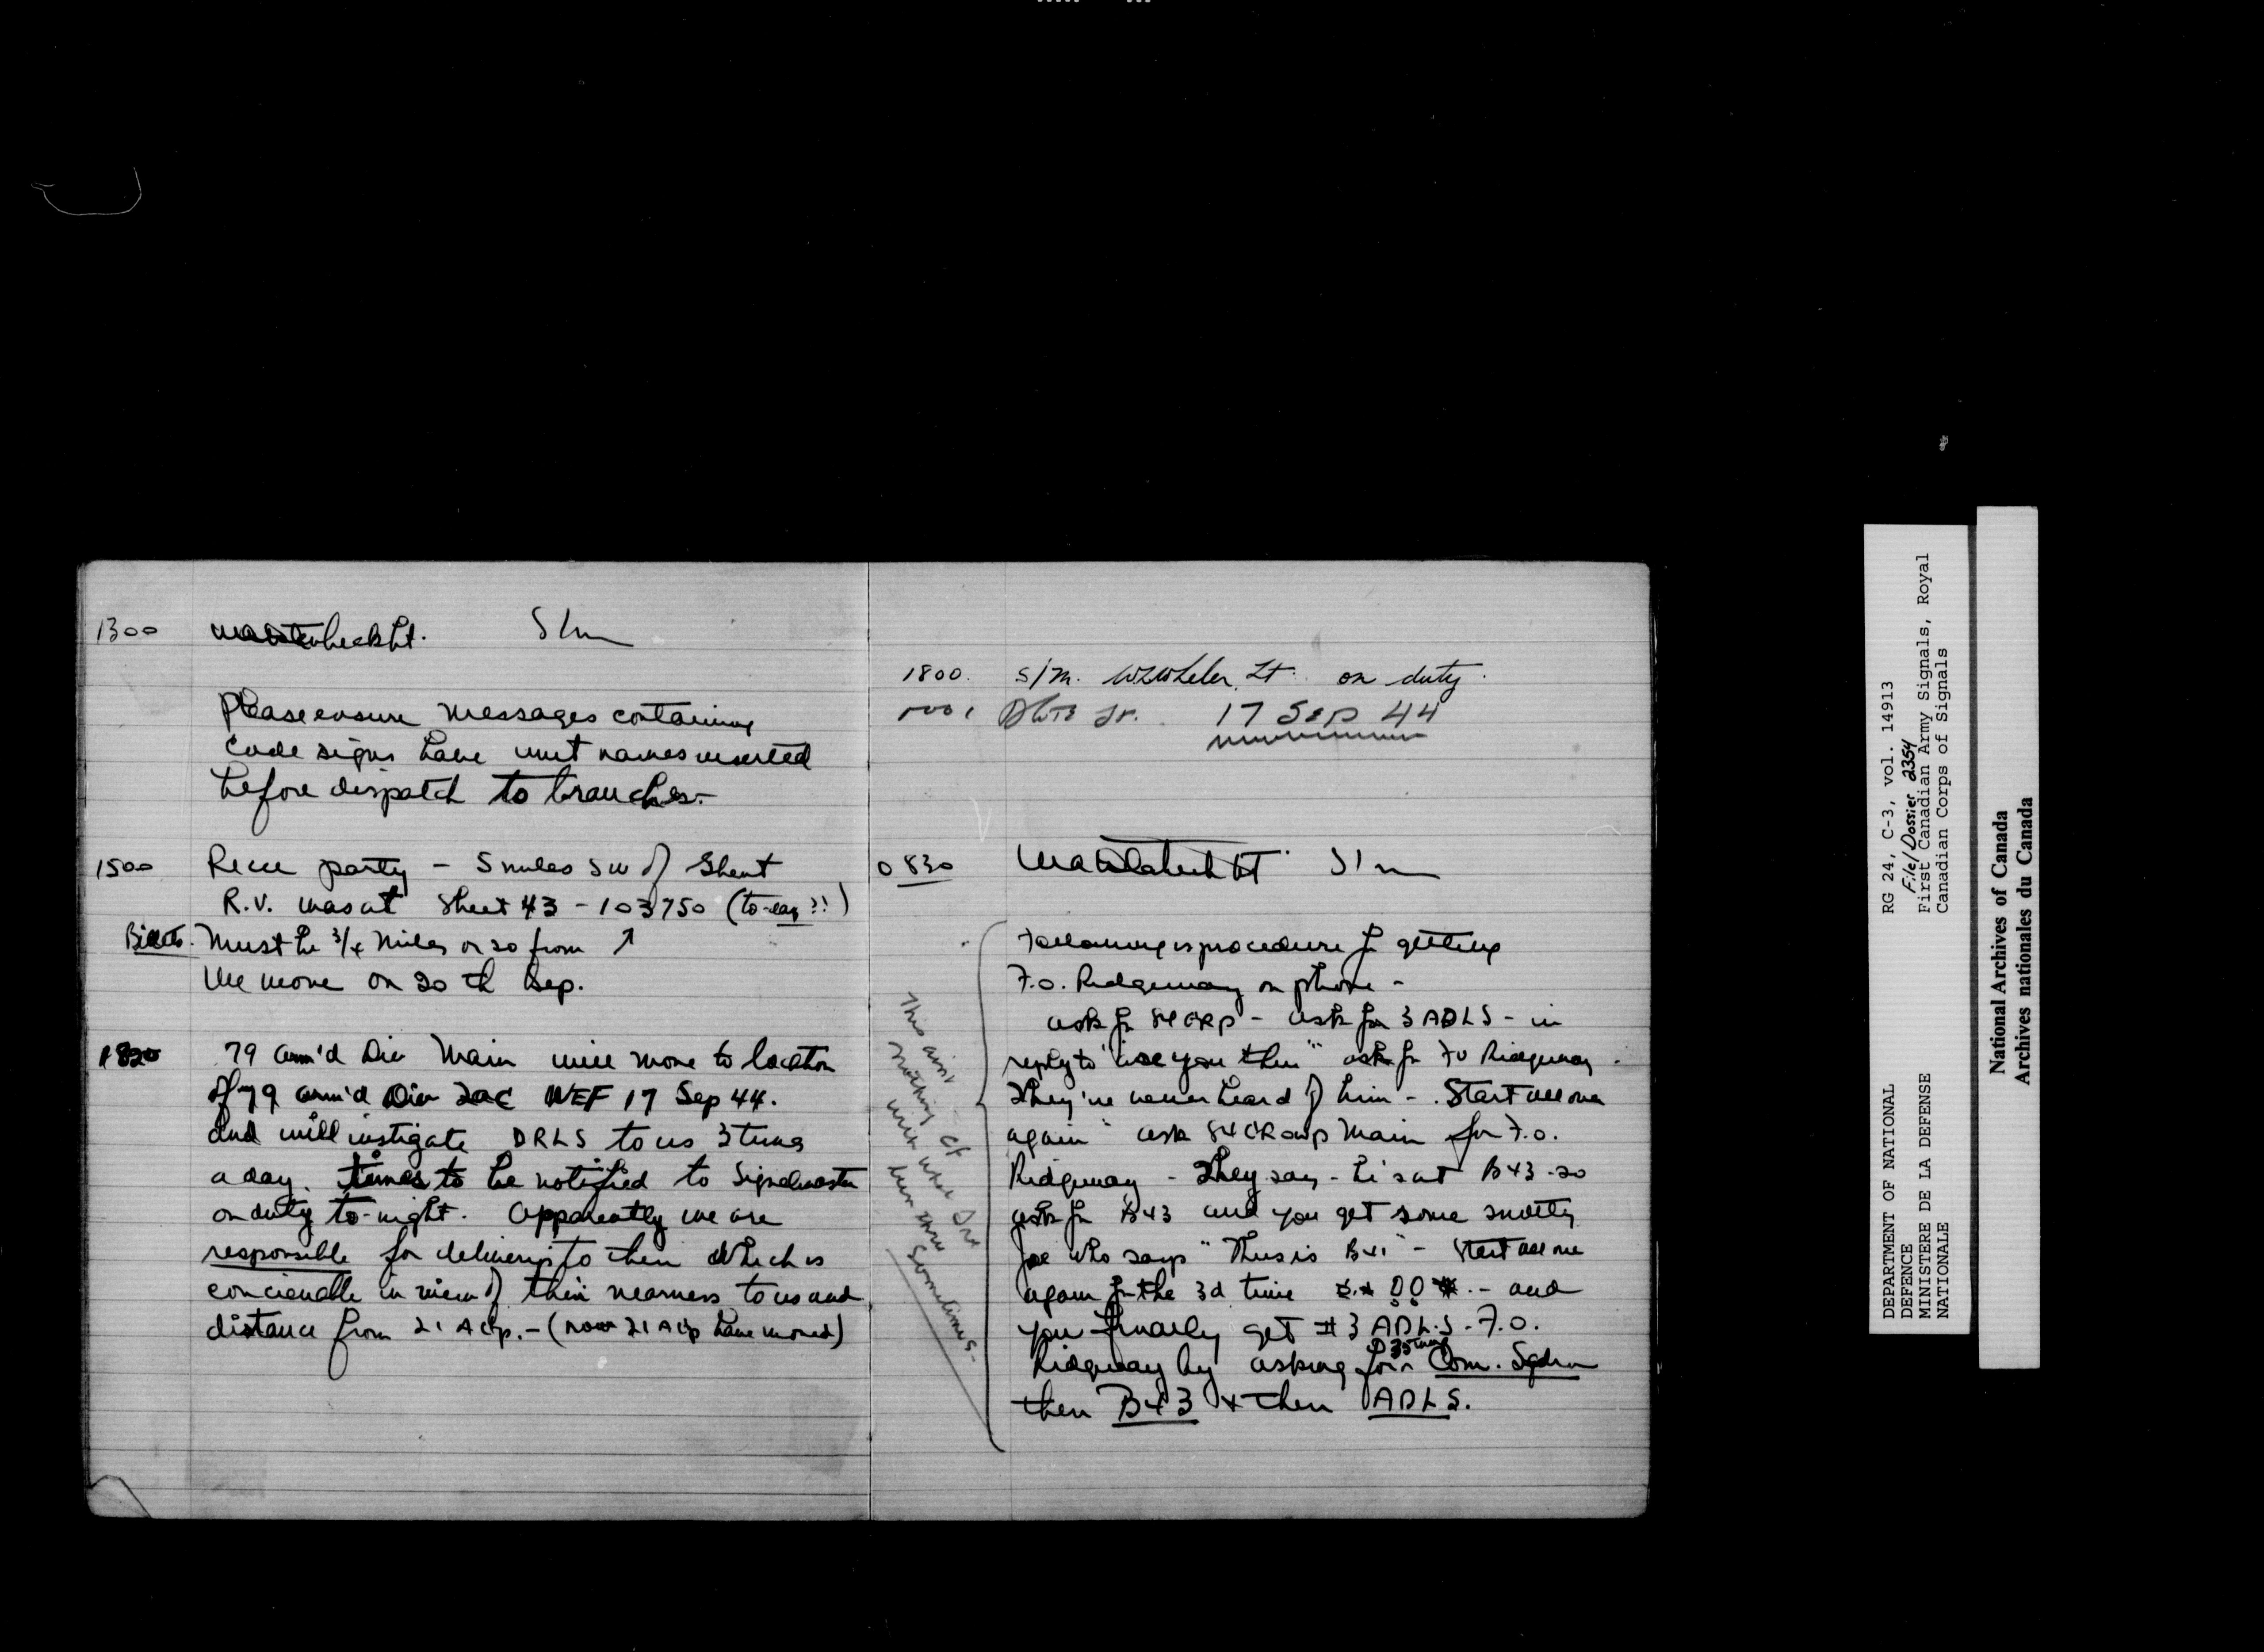 1300 S/m
Please ensure messages containing
code signs have unit names inserted
before dispatch to branches.
1500 Recce party - 5 miles SW of Ghent
R.V. was at Sheet 43 - 103750 (to-day ?!)
Billets. Must be 3/4 miles or so from ↑
We move on 20 th Sep.
1820 79 arm'd Div Main will move to location
of 79 arm'd Div Tac WEF 17 Sep 44.
and will instigate DRLS to us 3 times
a day. times to be notified to Signalmaster
on duty to-night. Apparently we are
responsible for delivering to them which is
concievable in view of their nearness to us and
distance from 21 A Gp. - (now 21 A Gp have moved)
1800. S/M. Lt. on duty.
17 Sep 44
0830 S/m
Following is procedure for getting
F.O. Ridgeway on phone -
ask for 84 GRP - ask for 3 ADLS - in
reply to "give you them" ask for FO Ridgeway.
They've never heard of him - . Start all over
again " ask 84 GRoup Main for F.O.
Ridgeway - They say - he's at B43 - so
ask for B43 and you get some snotty
Joe who says "This is B41" - Start all over
again for the 3d time - and
you finally get #3 ADLS - F.O.
Ridgeway by asking for Com. Sqdrn
then B43 & then ADLS.
This ain't
nothing cf
with what I've
been thru
Sometimes.
DEPARTMENT OF NATIONAL
DEFENCE
MINISTERE DE LA DEFENSE
NATIONALE
RG 24, C-3, vol. 14913
File/Dossier 2354
First Canadian Army Signals, Royal
Canadian Corps of Signals
National Archives of Canada
Archives nationales du Canada